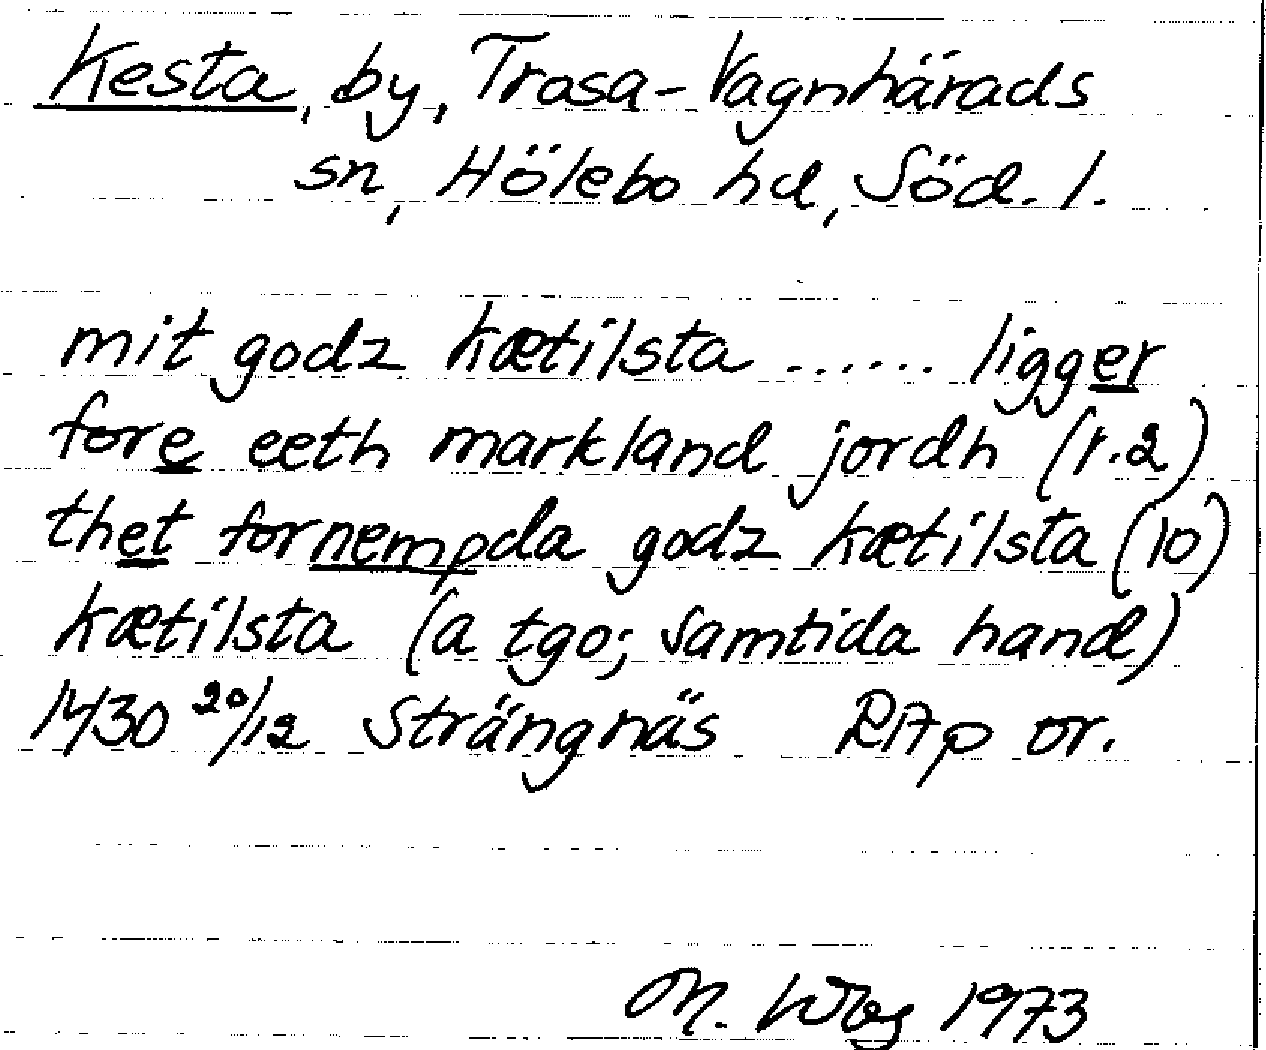 Kesta, by, Trosa-Vagnhärads
sn, Hölebo hd, Söd. l.
mit godz kætilsta ...... ligger
fore eeth markland jordh (r.2)
thet fornempda godz kætilsta (10)
kætilsta (a tgo; samtida hand)
1430 20/12 Strängnäs RAp or.
M. Wbg 1973